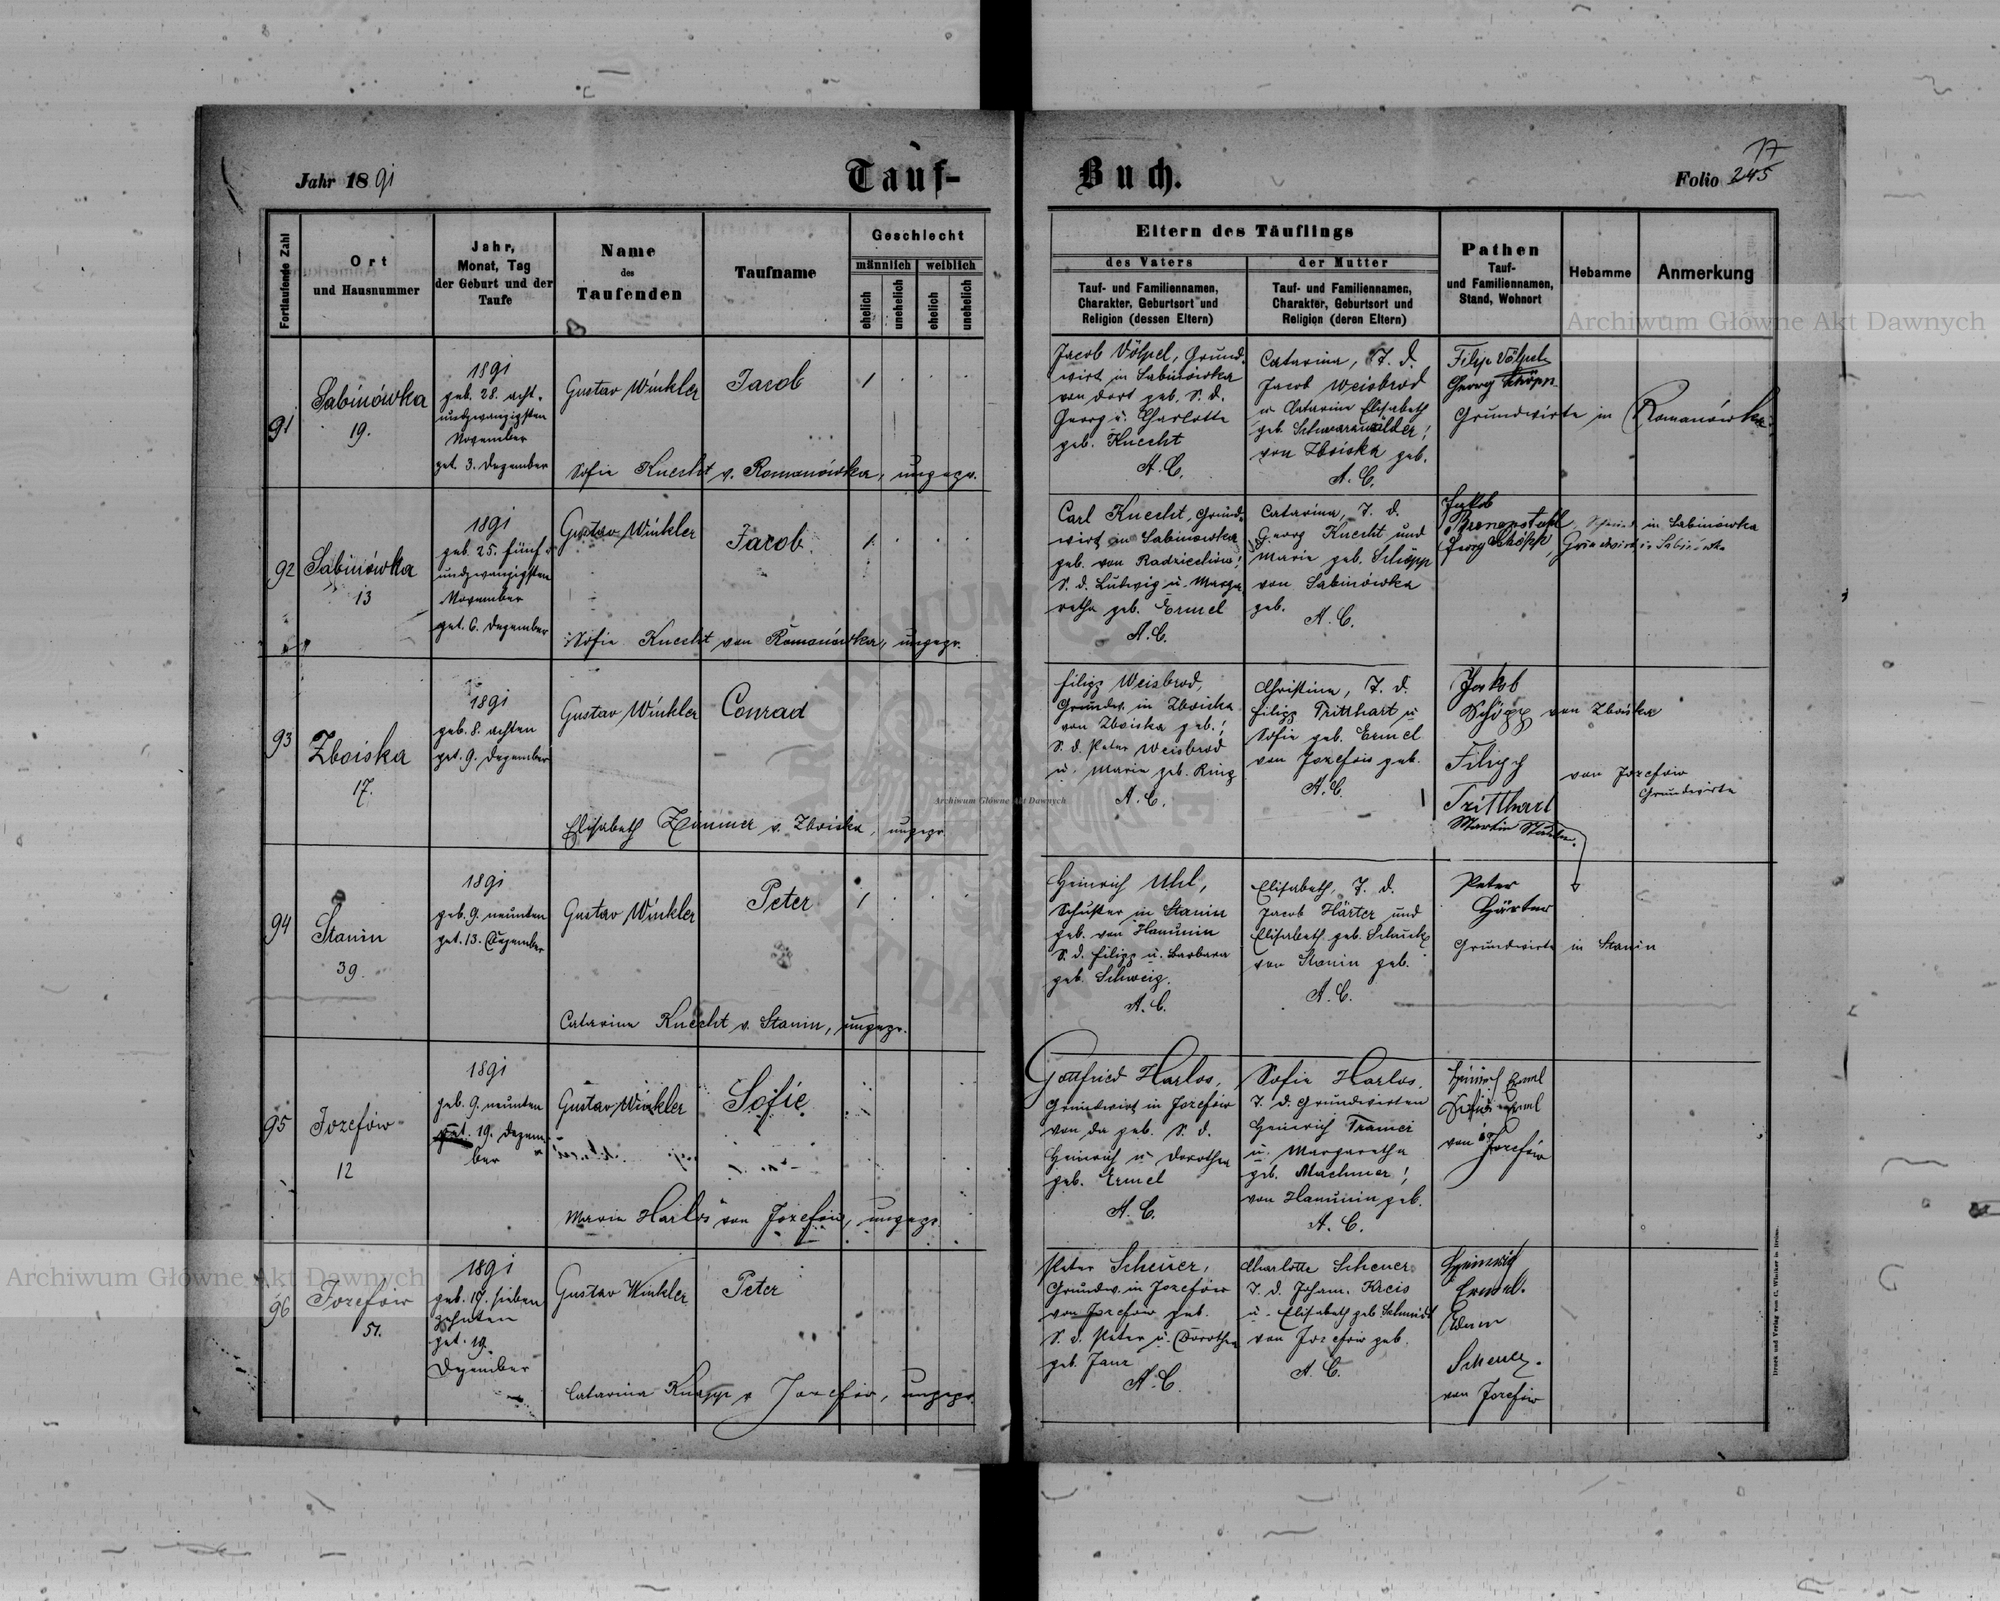 Jahr 1891
Tauf-
Buch.
17
Folio 245
Fortlaufende Zahl
Ort
und Hausnummer
Jahr,
Monat, Tag
der Geburt und der
Taufe
Name
des
Taufenden
Taufname
Geschlecht
männlich
weiblich
ehelich
unehelich
ehelich
unehelich
Eltern des Täuflings
des Vaters
der Mutter
Tauf- und Familiennamen,
Charakter, Geburtsort und
Religion (dessen Eltern)
Tauf- und Familiennamen,
Charakter, Geburtsort und
Religion (deren Eltern)
Pathen
Tauf-
und Familiennamen,
Stand, Wohnort
Hebamme
Anmerkung
91
Sabinówka
19.
1891
geb. 28. acht-
undzwanzigsten
November
get. 3. Dezember
Gustav Winkler
Jacob
1
Sofie Knecht v. Romanówka, ungepr.
Jacob Völpel, Grund-
wirt in Sabinówka
von dort geb. S. d.
Georg u. Charlotte
geb. Knecht
A. C.
Catarina, T. d.
Jacob Weisbrod
u. Catarina Elisabeth
geb. Schwarzwälder;
von Zboiska geb.
A. C.
Filip Völpel
Georg Schöpp
Grundwirte in Romanówka
92
Sabinówka
13
1891
geb. 25. fünf-
undzwanzigsten
November
get. 6. Dezember
Gustav Winkler
Jacob
1
Sofie Knecht von Romanówka, ungepr.
Carl Knecht, Grund-
wirt in Sabinówka
geb. von Radziechów;
S. d. Ludwig u. Marga
retha geb. Ermel
A. C.
Catarina, T. d.
Georg Knecht und
Marie geb. Schöpp
von Sabinówka
geb.
A. C.
Jakob
Georg Schöpp, Grundwirt in Sabinówka
93
Zboiska
17.
1891
geb. 8. achten
get. 9. Dezember
Gustav Winkler
Conrad
Elisabeth Zimmer v. Zboiska, ungepr.
Filipp Weisbrod,
Grundw. in Zboiska
von Zboiska geb.;
S. d. Peter Weisbrod
u. Marie geb. Ring
A. C.
Christina, T. d.
Filipp Tritthart u.
Sofie geb. Ermel
von Jozefów geb.
A. C.
Jakob
Schöpp von Zboiska
Filipp
Tritthart
von Jozefów
Grundwirte
94
Stanin
39.
1891
geb. 9. neunten
get. 13. Dezember
Gustav Winkler
Peter
1
Catarina Knecht v. Stanin, ungepr.
Heinrich Uhl,
Schuster in Stanin
geb. von Hanunin
S. d. Filipp u. Barbara
geb. Schweiz.
A. C.
Elisabeth, T. d.
Jacob Härter und
Elisabeth geb. Schuck
von Stanin geb.
A. C.
Peter
Härter
Grundwirte in Stanin
95
Jozefów
12
1891
geb. 9. neunten
get. 19. Dezem-
ber
Gustav Winkler
Sofie
Maria Harlos von Jozefów, ungepr.
Gottfried Harlos,
Grundwirt in Jozefów
von da geb. S. d.
Heinrich u. Dorothea
geb. Ermel
A. C.
Sofie Harlos,
T. d. Grundwirten
Heinrich Tramer
u. Margaretha
geb. Machmer;
von Hanunin geb.
A. C.
Heinrich Ermel
Sofie Ermel
von Jozefów
96
Jozefów
51.
1891
geb. 17. sieben
zehnten
get. 19.
Dezember
Gustav Winkler
Peter
Catarina Knapp v. Jozefów, ungepr.
Peter Scheuer,
Grundw. in Jozefów
von Jozefów geb.
S. d. Peter u. Dorothea
geb. Janz
A. C.
Charlotte Scheuer
T. d. Johann Kreis
u. Elisabeth geb. Schmidt
von Jozefów geb.
A. C.
Heinrich
Ermel.
Adam
Scheuer.
von Jozefów
Archiwum Główne Akt Dawnych
Archiwum Główne Akt Dawnych
Archiwum Główne Akt Dawnych